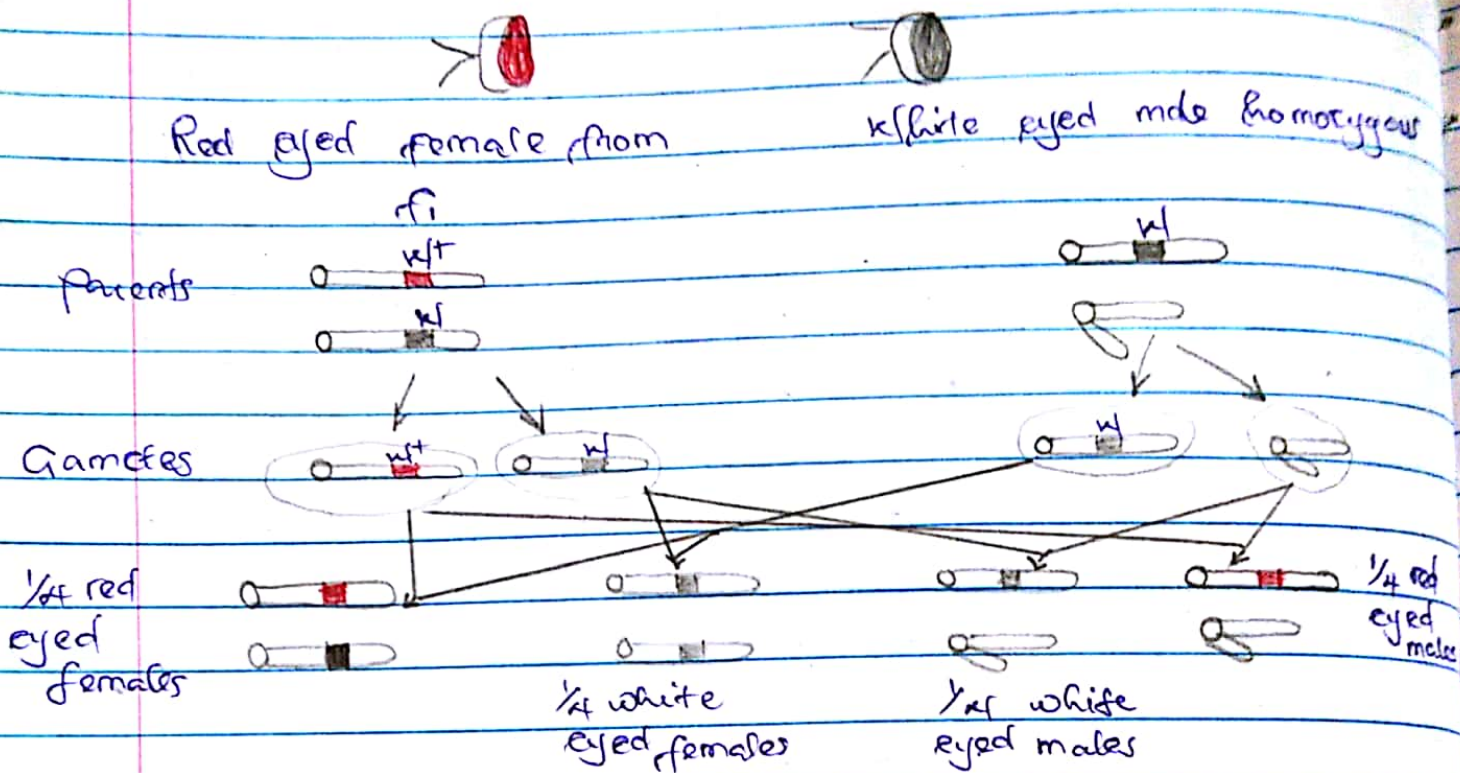 Red eyed female from
White eyed male homozygous
F1
w+
w
Parents
w
w+
w
w
Gametes
1/4 red
eyed
females
1/4 red
eyed
males
1/4 white
eyed females
1/4 white
eyed males